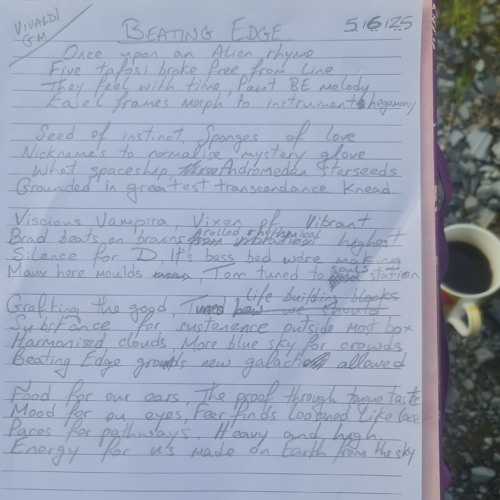 VIVALDI
GM
BEATING EDGE
5.6.125
Once upon an Alien rhyme
Five tafosi broke free from Line
They feel with time, Paint BE melody
Easel frames morph to instruments hegemony
Seed of instinct, Sponges of love
Nickname's to normalise mystery glove
What spaceship, Andromedan Starseeds
Grounded in greatest transcendance Knead.
Viscious Vampira, Vixen of Vibrant
Brad beats on brawns rhythmical highest
Silence for D, It's bass bed were making
Maux here moulds Tom tuned to souls station
Life building blocks
Grafting the good, we should
Substance for sustenence outside most box
Harmonised clouds, More blue sky for crowds
Beating Edge new allowed
Food for our ears, The proof through tongue taste
Mood for our eyes, Fear finds loosened like lace
Paces for pathways, Heavy and high
Energy for u's made on Earth from the sky